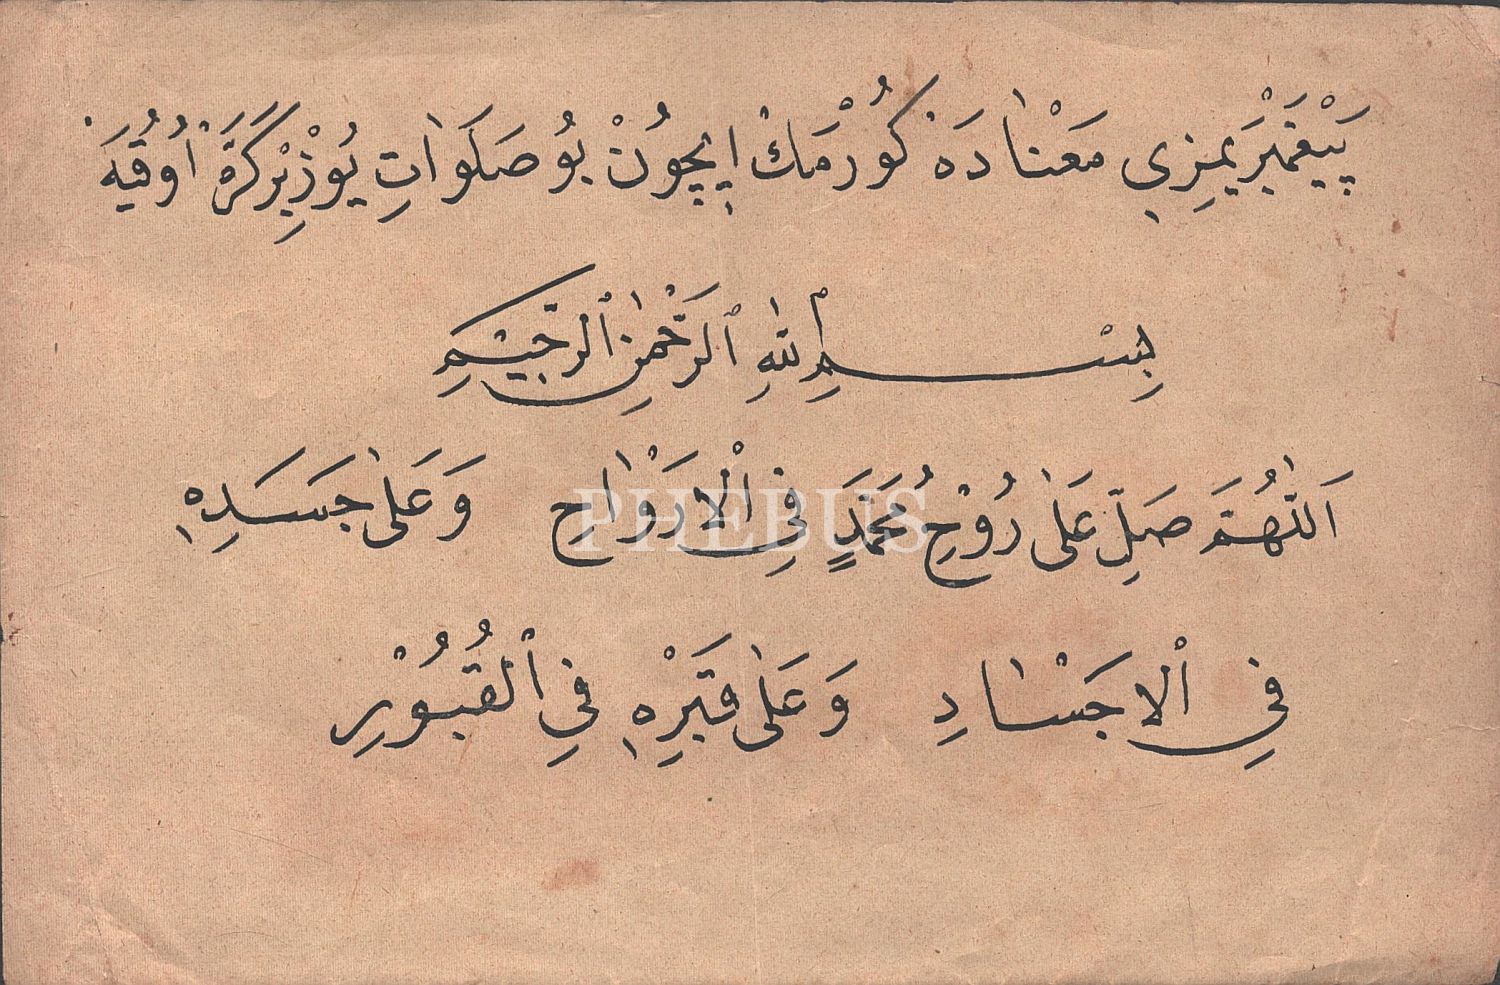 پَيْغَمْبَرْيمِزِي مَعْنٰادَه كُورْمَكْ اِيچُونْ بُو صَلَوٰاتِ يُوزْبِرْكَرَّه اُوقُيَه
بِسْمِ اللّٰهِ الرَّحْمٰنِ الرَّحِيْمِ
اَللّٰهُمَّ صَلِّ عَلٰى رُوْحِ مُحَمَّدٍ فِي الْاَرْوٰاحِ وَعَلٰى جَسَدِهٖ
فِي الْاَجْسٰادِ وَعَلٰى قَبْرِهٖ فِي الْقُبُوْرِ
PHEBUS